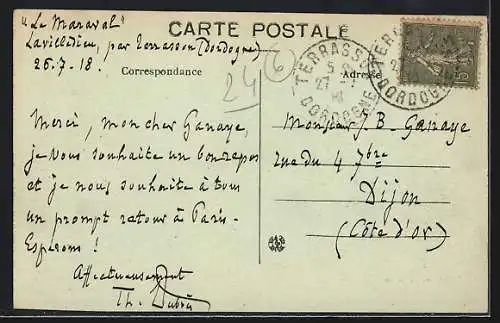 "Le Maraval"
Lavilledieu, par Terrasson (Dordogne)
26.7.18.
CARTE POSTALE
Correspondance
Adresse
24
6
TERRASSON
27
DORDOGNE
DORDOGNE
15
Merci, mon cher Ganaye,
je vous souhaite un bon repos
et je nous souhaite à tous
un prompt retour à Paris.
Espérons !
Affectueusement
Th. Dubois
Monsieur J. B. Ganaye
rue du 4 7bre
Dijon
(Côte d'or)